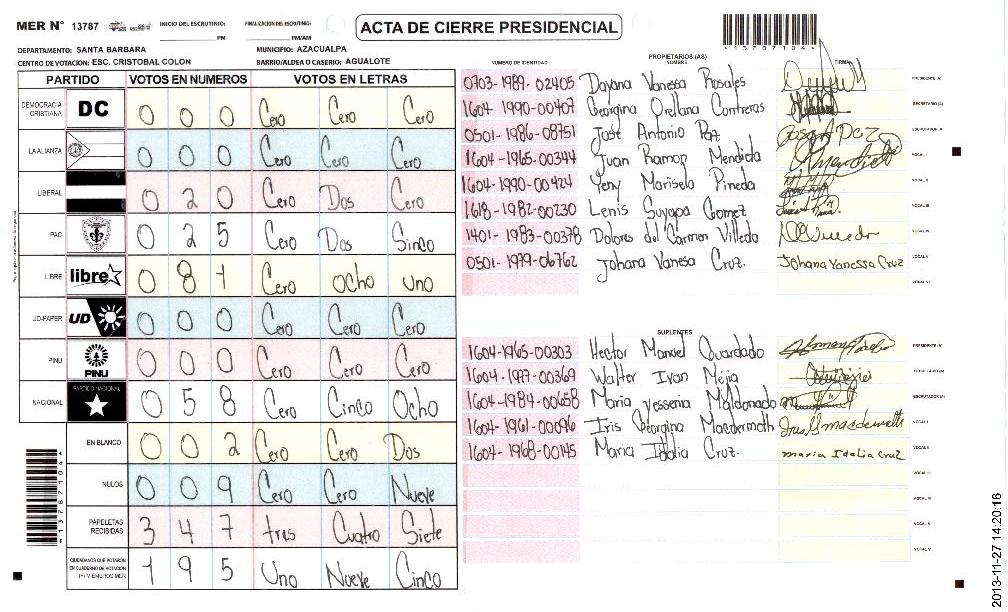 MER N° 13787 INICIO DEL ESCRUTINIO: PM FINALIZACION DEL ESCRUTINIO: PM/AM
ACTA DE CIERRE PRESIDENCIAL
*13787104*
DEPARTAMENTO: SANTA BARBARA MUNICIPIO: AZACUALPA
CENTRO DE VOTACION: ESC. CRISTOBAL COLON BARRIO/ALDEA O CASERIO: AGUALOTE
PARTIDO VOTOS EN NUMEROS VOTOS EN LETRAS
DEMOCRACIA CRISTIANA DC 0 0 0 Cero Cero Cero
LA ALIANZA 0 0 0 Cero Cero Cero
LIBERAL 0 2 0 Cero Dos Cero
PAC 0 2 5 Cero Dos Sinco
LIBRE libre 0 8 1 Cero Ocho uno
UD-FAPER UD 0 0 0 Cero Cero Cero
PINU PINU 0 0 0 Cero Cero Cero
NACIONAL PARTIDO NACIONAL 0 5 8 Cero Cinco Ocho
EN BLANCO 0 0 2 Cero Cero Dos
NULOS 0 0 9 Cero Cero Nueve
PAPELETAS RECIBIDAS 3 4 7 tres Cuatro Siete
CIUDADANOS QUE VOTARON EN CUADERNO DE VOTACION (+) MIEMBROS MER 1 9 5 Uno Nueve Cinco
*13787104*
PROPIETARIOS (AS)
NUMERO DE IDENTIDAD NOMBRE FIRMA
0703-1989-02405 Dayana Vanessa Rosales PRESIDENTE (A)
1604-1990-00407 Georgina Orellana Contreras SECRETARIO (A)
0501-1986-08751 José Antonio Paz ESCRUTADOR (A)
1604-1965-00344 Juan Ramon Mendieta VOCAL I
1604-1990-00424 Yeny Marisela Pineda VOCAL II
1618-1982-00230 Lenis Suyapa Gomez VOCAL III
1401-1983-00378 Dolores del Carmen Villeda VOCAL IV
0501-1979-06762 Johana Vanesa Cruz. Johana Vanessa Cruz VOCAL V
VOCAL VI
SUPLENTES
1604-1965-00303 Hector Manuel Guardado PRESIDENTE (A)
1604-1977-00369 Walter Ivan Mejia SECRETARIO (A)
1604-1984-00658 Maria Yessenia Maldonado ESCRUTADOR (A)
1604-1961-00096 Iris Georgina Macdermoth VOCAL I
1604-1968-00145 Maria Idalia Cruz. maria Idalia Cruz VOCAL II
VOCAL III
VOCAL IV
VOCAL V
VOCAL VI
2013-11-27 14:20:16